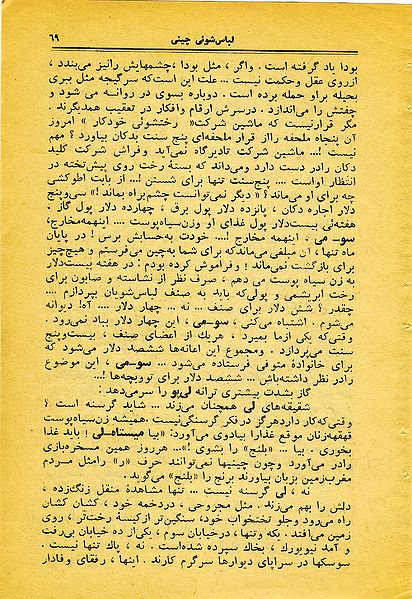 لباس‌شوئی چینی ۶۹
بودا یاد گرفته است . واگر ، مثل بودا ،چشمهایش رانیز می‌بندد ،
ازروی عقل وحکمت نیست ... علت این‌است‌که سرگیجه مثل ببری
بحیله براو حمله برده است . دوباره بسوی در روانه می شود و
جفتش را می‌اندازد . درسرش ارقام وافکار در تعقیب همدیگرند .
مگر قرارنیست که ماشین شرکت« رختشوئی خودکار » امروز
آن پنجاه ملحفه رااز قرار ملحفه‌ای پنج سنت بدکان بیاورد ؟ مهم
نیست !... ماشین شرکت تادرگاه نمی‌آید وفراش شرکت کلید
دکان رادر دست دارد ومی‌داند که بستهٔ رخت روی پیش‌تخته در
انتظار اواست .... پنج‌سنت تنها برای شستن !... از بابت اطوکشی
چه برای او می‌ماند؟« دیگر نمی‌توانست چشم‌براه بماند !» سی‌وپنج
دلار اجاره دکان ، پانزده دلار پول برق ، چهارده دلار پول گاز .
هفته‌ئی بیست‌دلار پول غذای او وزن‌سیاه‌پوست .... اینهمه‌مخارج،
سو-می . اینهمه مخارج !.... خودت به‌حسابش برس ! در پایان
ماه تنها، آن مبلغی می‌ماندکه برای شما به‌چین می‌فرستم و هیچ‌چیز
برای بازگشت نمی‌ماند ! و فراموش کرده بودم : در هفته بیست‌دلار
به زن سیاه پوست می دهم ، صرف نظر از نشاسته و صابون برای
رخت ابریشمی و پولی‌که باید به صنف لباس‌شویان بپردازم ....
چقدر ؟ شش دلار برای صنف .. نه ... چهار دلار .... آه! دیوانه
می‌شوم . اشتباه می‌کنی ، سو-می ، این چهار دلار بیاد نمی‌رود .
وقتی‌که یکی ازما بمیرد ، هریک از اعضای صنف ، بیست‌وپنج
سنت می‌پردازد . ومجموع این اعانه‌ها ششصد دلار می‌شود که
برای خانوادهٔ متوفی فرستاده می‌شود ... سو-می ، این موضوع
رادر نظر داشته‌باش ... ششصد دلار برای تووبچه‌ها !...
گاز بشدت بیشتری ترانه لی‌پو را سرمی‌دهد :
شقیقه‌های لی همچنان می‌زند ... شاید گرسنه است ؟
وقتی‌که کار دارد‌هرگز درفکر گرسنگی‌نیست .همیشه زن‌سیاه‌پوست
قهقهه‌زنان موقع غذارا بیادوی می‌آورد: «بیا میستاه‌لی ! باید غذا
بخوری . بیا ... «پلنج» را بشوی !»... هرروز همین مسخره‌بازی
رادر می‌آورد وچون چینیها نمی‌توانند حرف «ر» رامثل مردم
مغرب‌زمین بزبان بیاورند برنج را «پلنج» می‌گوید .
نه ، لی گرسنه نیست ... تنها مشاهدهٔ منقل زنگ‌زده ،
دلش را بهم می‌زند . مثل مجروحی ، دردخمه خود ، کشان کشان
راه می‌رود وجلو تختخواب خود، سنگین‌تر ازکیسهٔ رخت‌تر ، روی
زمین می‌افتد . یکه وتنها، درخیابان سوم ، یکی‌از ده خیابان پی‌رفت
و آمد نیویورک ، بخاک سپرده شده‌است . نه ، پاک تنها نیست .
سوسکها در سراپای دیوارها سرگرم کارند . اینها ، رفقای وفادار